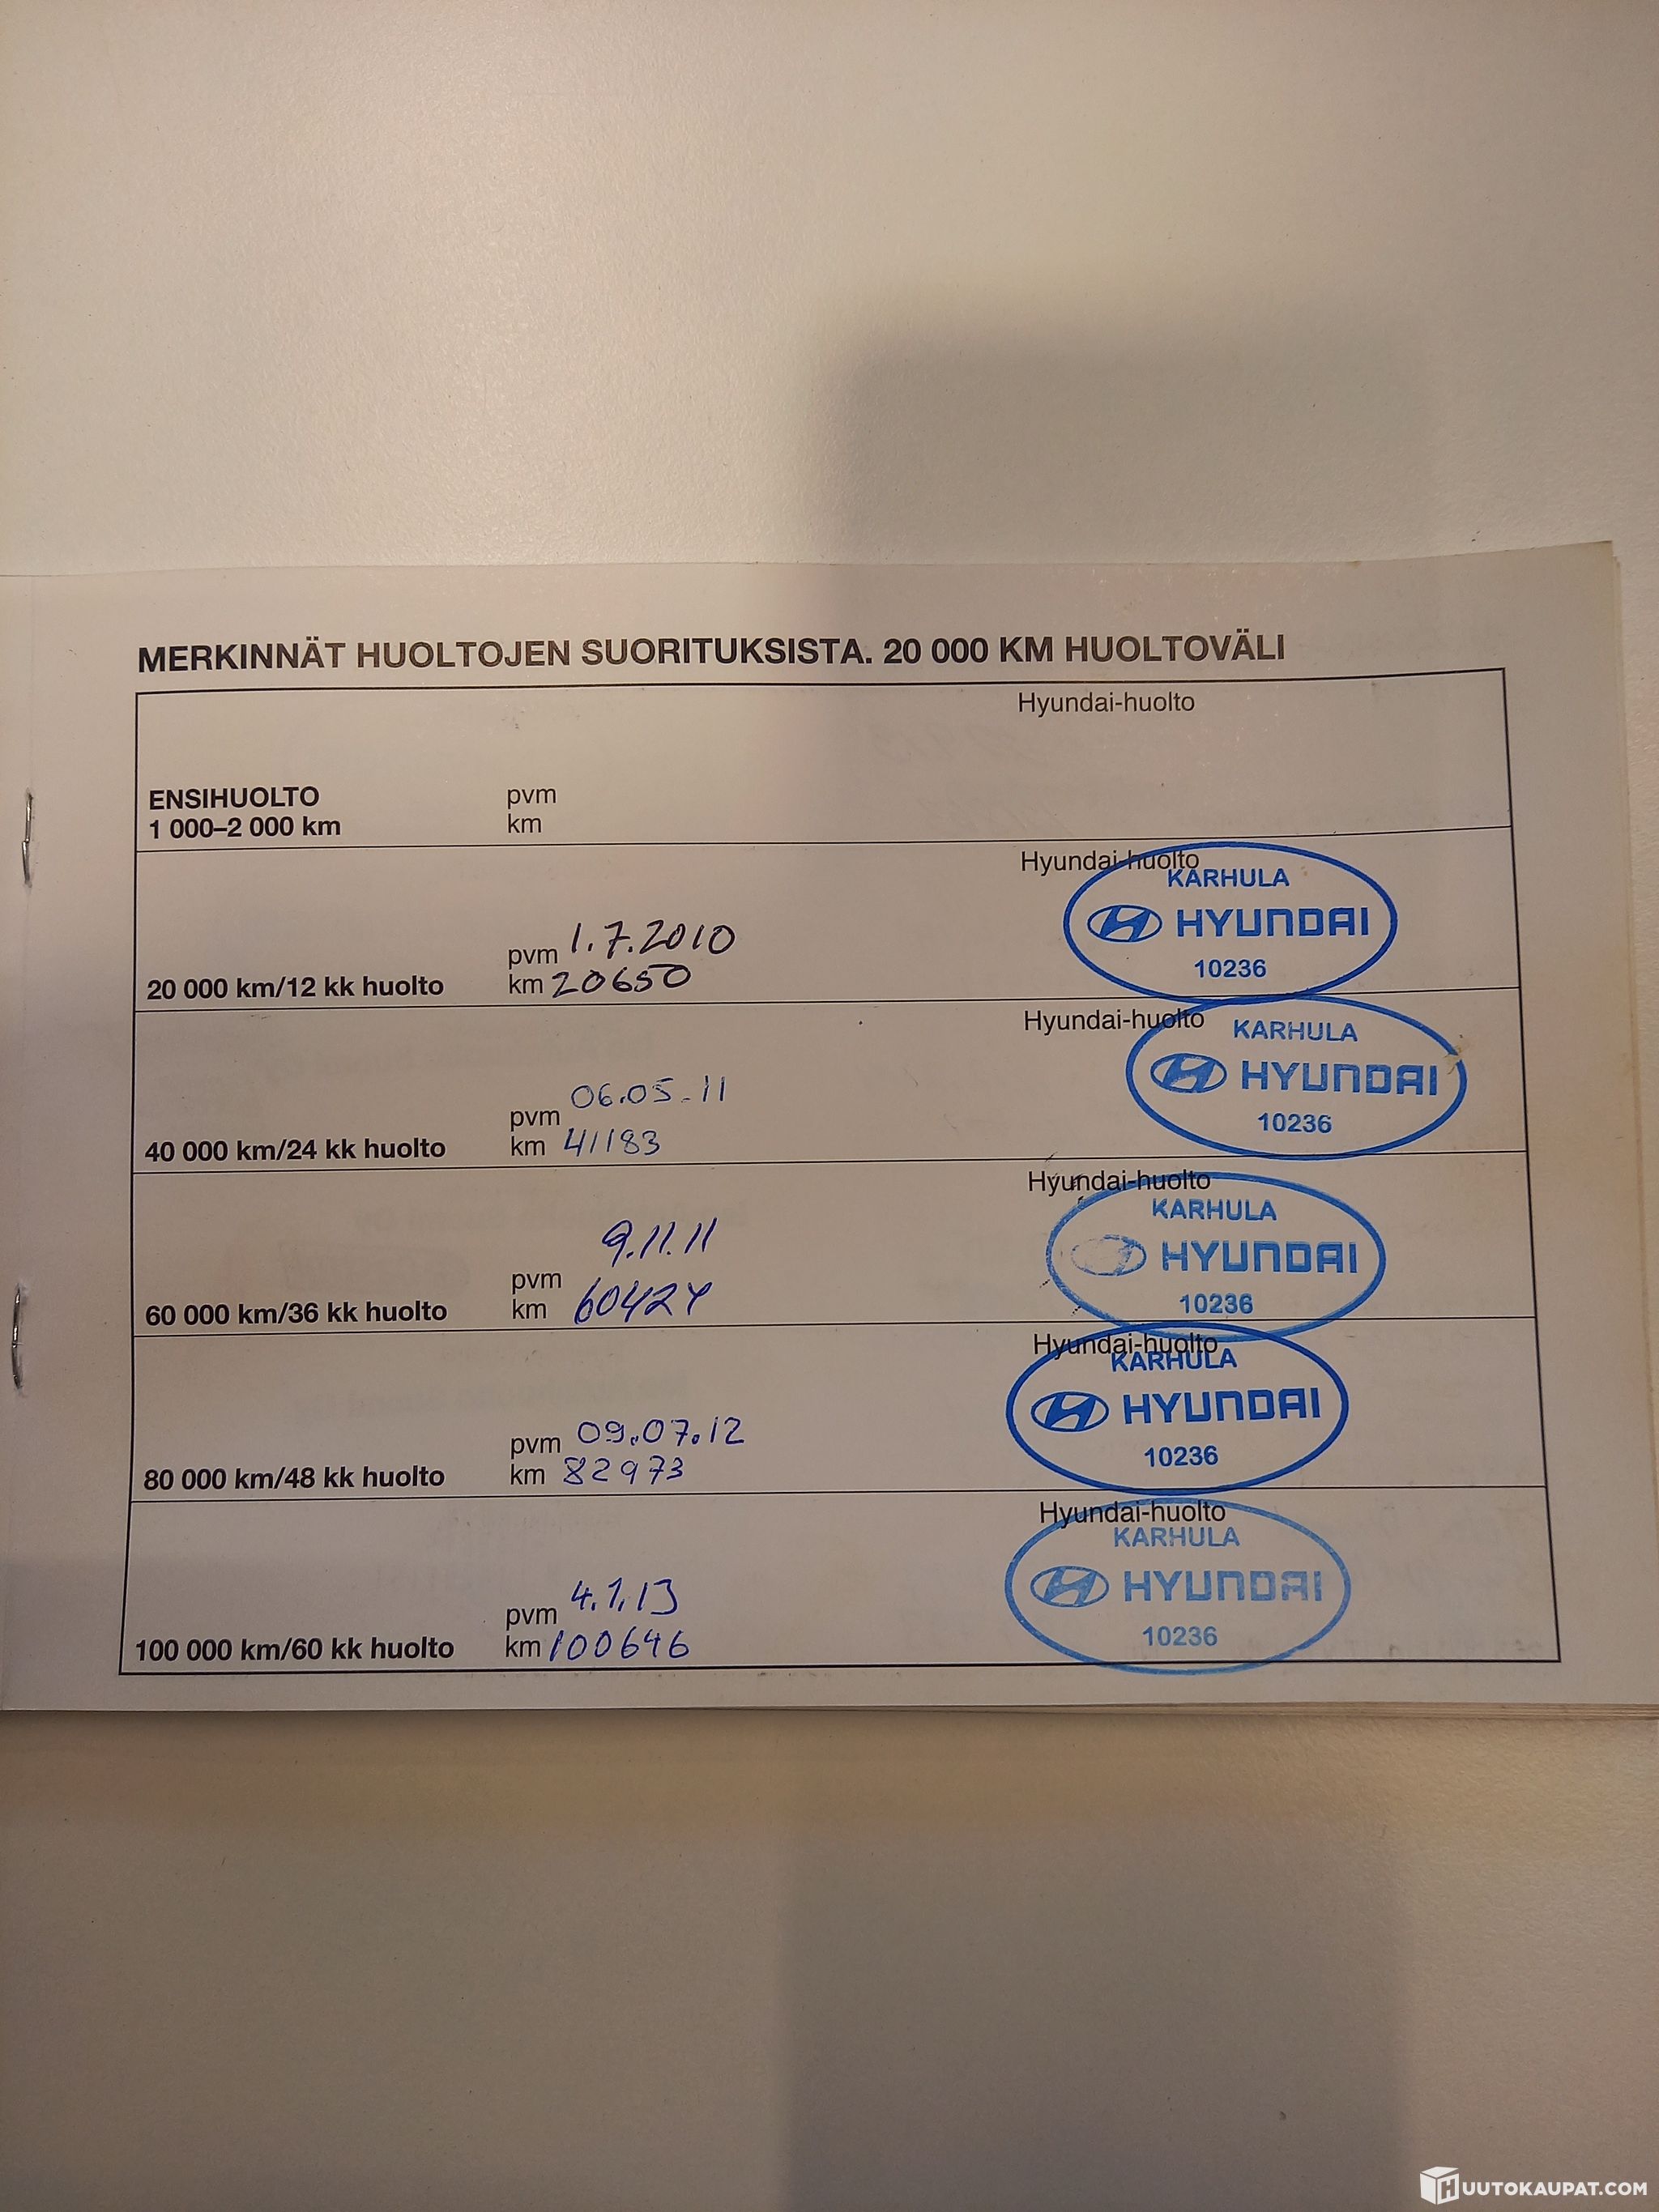 MERKINNÄT HUOLTOJEN SUORITUKSISTA. 20 000 KM HUOLTOVÄLI
Hyundai-huolto
ENSIHUOLTO pvm
1 000–2 000 km km
Hyundai-huolto
KARHULA
HYUNDAI
pvm 1.7.2010
10236
20 000 km/12 kk huolto km 20650
Hyundai-huolto
KARHULA
HYUNDAI
06.05.11
pvm
10236
40 000 km/24 kk huolto km 41183
Hyundai-huolto
KARHULA
9.11.11
HYUNDAI
pvm
10236
60 000 km/36 kk huolto km
Hyundai-huolto
KARHULA
HYUNDAI
pvm 09.07.12
10236
80 000 km/48 kk huolto km 82973
Hyundai-huolto
KARHULA
HYUNDAI
pvm 4.1.13
10236
100 000 km/60 kk huolto km 100646
HUUTOKAUPAT.COM